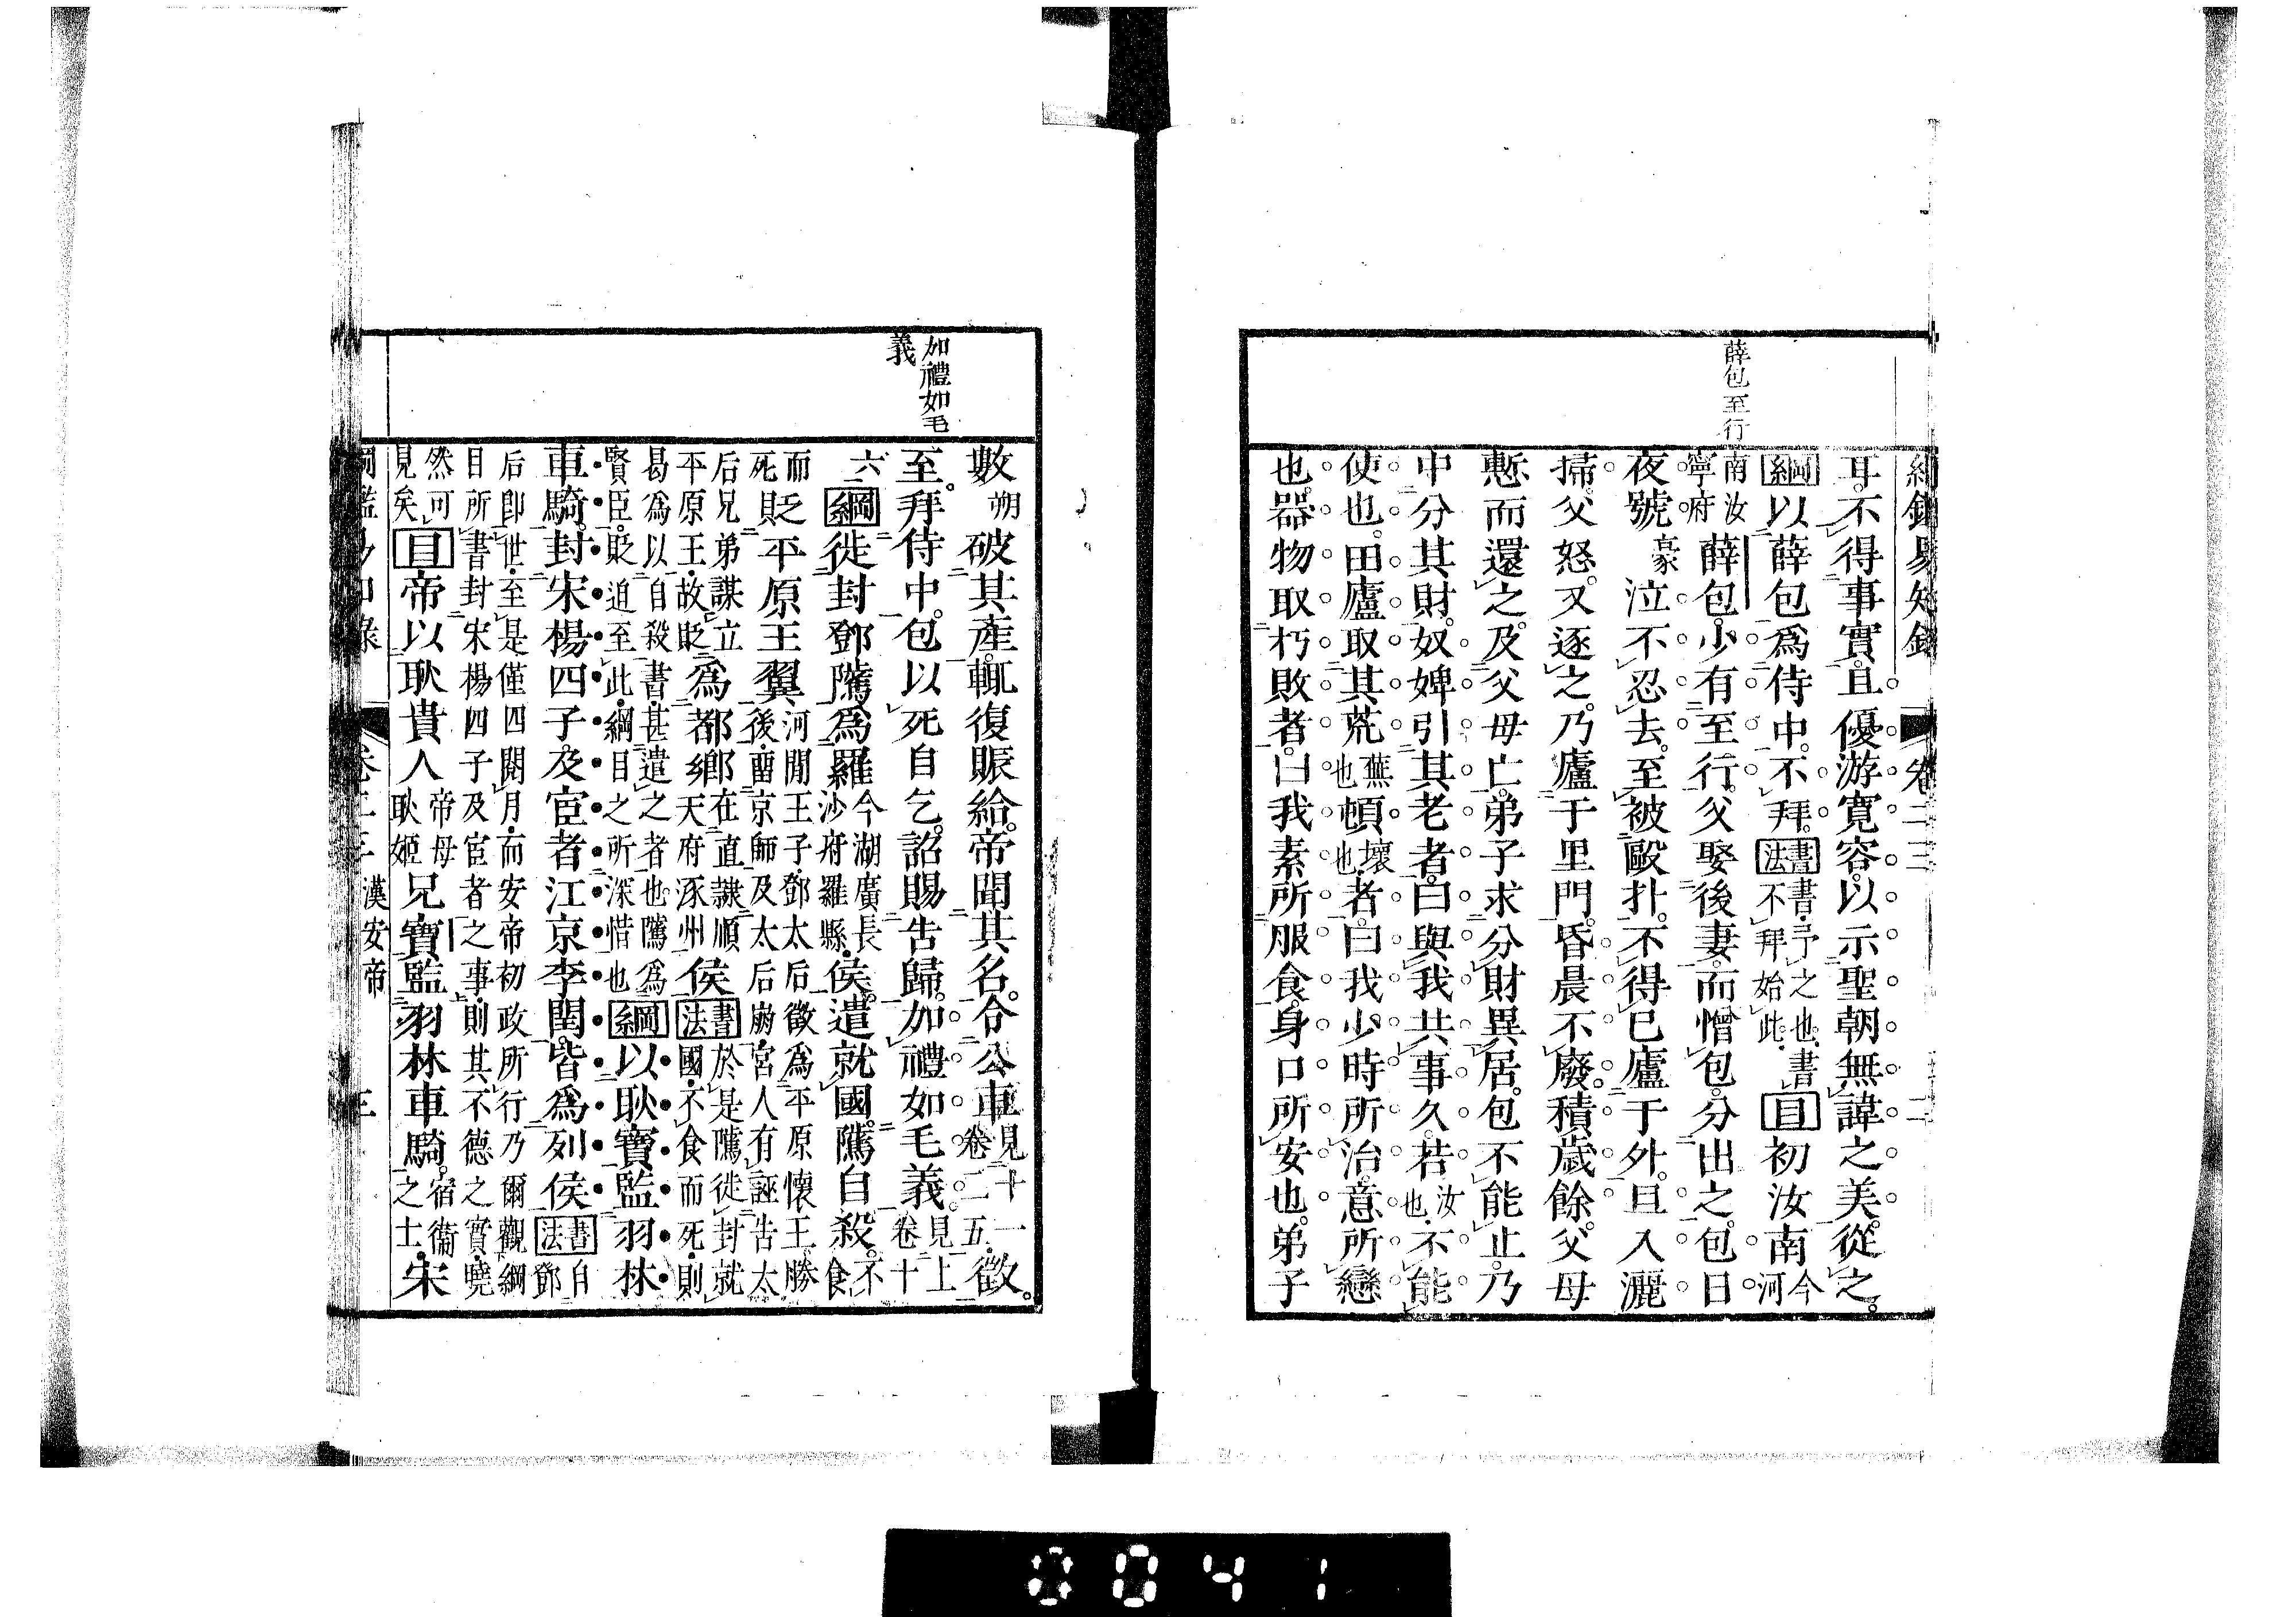 薛包至行
耳不得事實且優游寬容以示聖朝無諱之美從之
綱以薛包爲侍中不拜書法書予之也書不拜始此目初汝南今河
南汝寧府薛包少有至行父娶後妻而憎包分出之包日
夜號豪泣不忍去至被毆扑不得已廬于外旦入灑
掃父怒又逐之乃廬于里門昏晨不廢積歲餘父母
慙而還之及父母亡弟子求分財異居包不能止乃
中分其財奴婢引其老者曰與我共事久若汝也不能
使也田廬取其荒蕪也頓壞也者曰我少時所治意所戀
也器物取朽敗者曰我素所服食身口所安也弟子
如禮如毛
義
數朔破其產輒復賑給帝聞其名令公車見十一卷二五徵
至拜侍中包以死自乞詔賜告歸加禮如毛義見上卷十
六綱徙封鄧騭爲羅今湖廣長沙府羅縣侯遣就國騭自殺不食
而死貶平原王翼河間王子鄧太后徵爲平原懷王勝後留京師及太后崩宮人有誣告太
后兄弟謀立平原王故貶爲都鄉在直隸順天府涿州侯書法於是騭徙封就國不食而死則
曷爲以自殺書甚遣之者也騭爲賢臣貶迫至此綱目之所深惜也綱以耿寶監羽林
車騎封宋楊四子及宦者江京李閏皆爲列侯書法自鄧
后卽世至是僅四閱月而安帝初政所行乃爾觀綱目所書封宋楊四子及宦者之事則其不德之實曉
然可見矣目帝以耿貴人帝母耿姬兄寶監羽林車騎宿衞之士宋
漢安帝